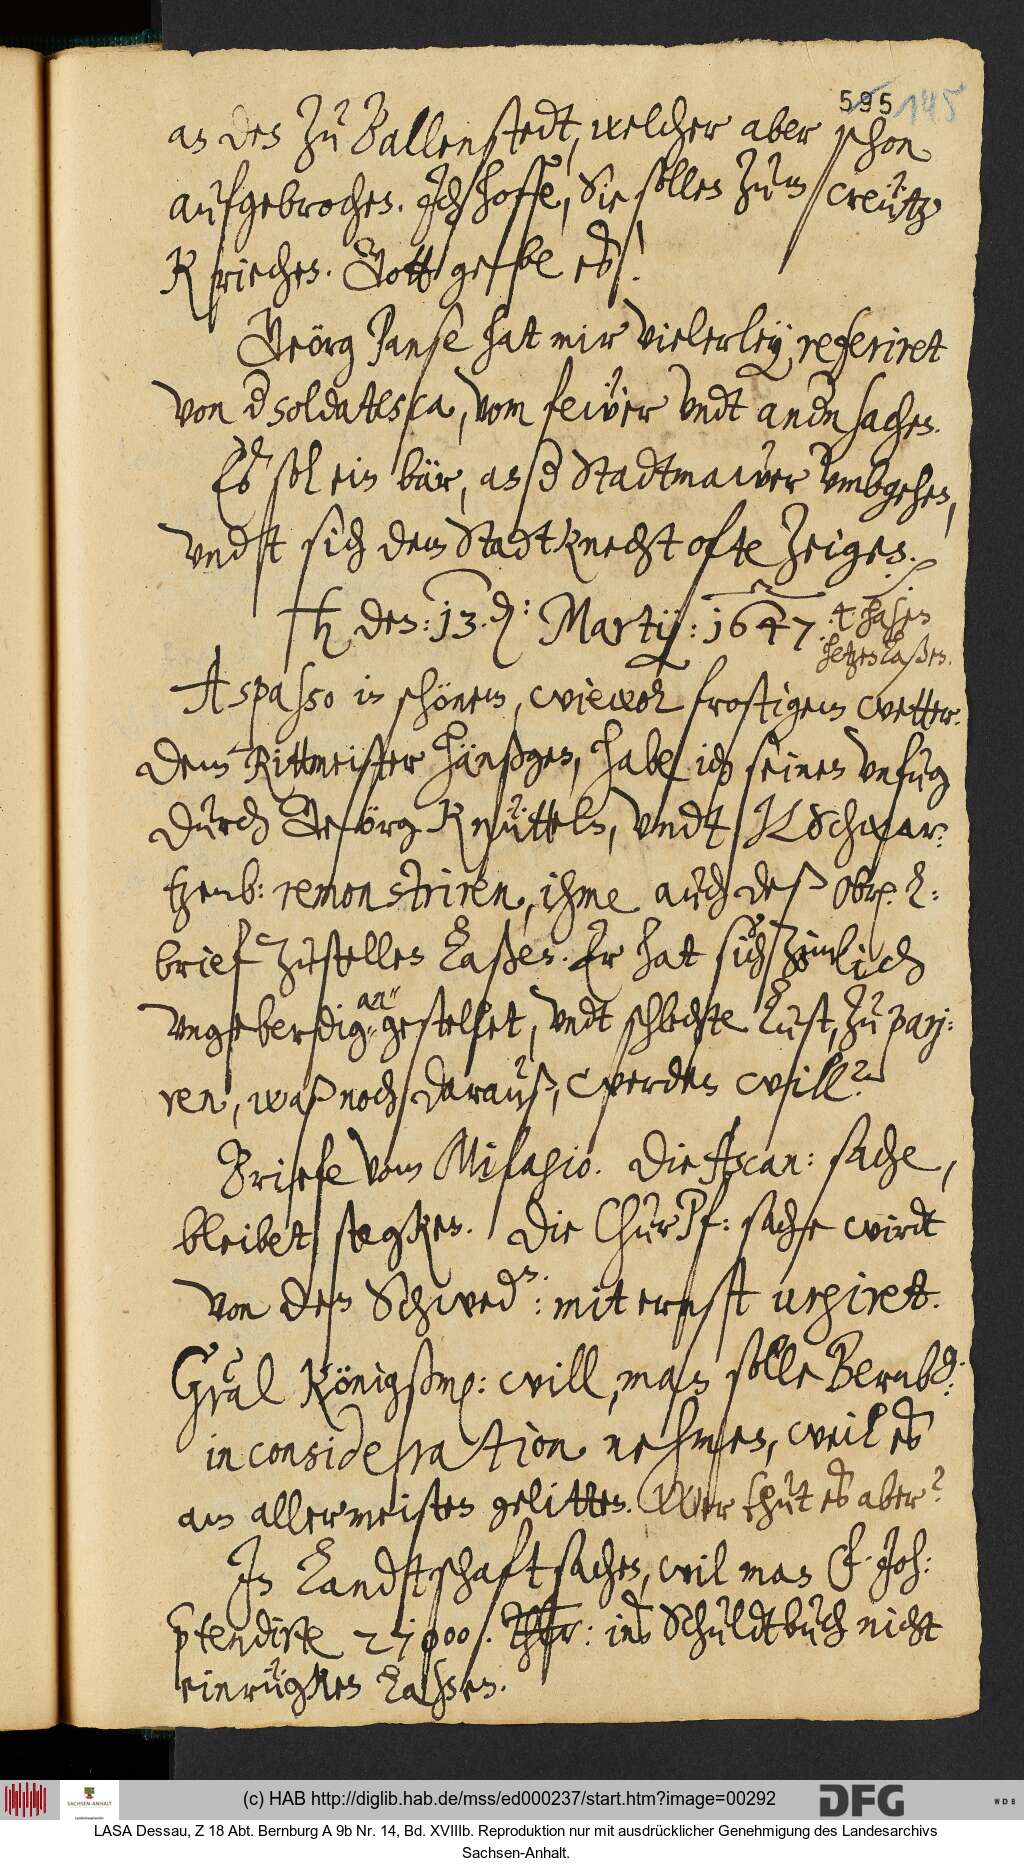 595 145
an den zu Ballenstedt, welcher aber schon
aufgebrochen. Ich hoffe, Sie sollen zum creütz
Kriechen. Gott gebe es!
Geörg Panse hat mir vielerley referiret
von d soldatesca, vom feiẅer vndt andn sachen.
Es sol ein bär, an d Stadtmawer vmbgehen,
vndt sich dem Stadtknecht ofte zeigen.
♄ den: 13. d: Martij: 1647. 4 hasen
hetzen laßen.
A spasso in schönem, wiewol frostigem wetter.
Dem Rittmeister Hänßgen, habe ich seinen vnfug
durch Geörg Knütteln, vndt JL Schwar-
tzenb: remonstriren, ihme auch deß Obr. L:
brief zustellen laßen. Er hat sich zimlich
vngeberdig an gestellet, vndt schlechte lust, zu parj-
ren, waß noch darauß, werden will?
Briefe vom Milagio. Die Ascan: sache,
bleibet stegken. Die ChurPf: sache wirdt
von den Schwedn: mit ernst urgiret.
Gral Königßm: will, man solle Bernb:
in consideration nehmen, weil es
am allermeisten gelitten. Wer thut es aber?
In Landtschaft sachen, wil man F. Joh:
ptendirte 27000. Thlr: ins Schuldtbuch nicht
einrügken laßen.
(c) HAB http://diglib.hab.de/mss/ed000237/start.htm?image=00292
SACHSEN-ANHALT
DFG
WDB
LASA Dessau, Z 18 Abt. Bernburg A 9b Nr. 14, Bd. XVIIIb. Reproduktion nur mit ausdrücklicher Genehmigung des Landesarchivs
Sachsen-Anhalt.